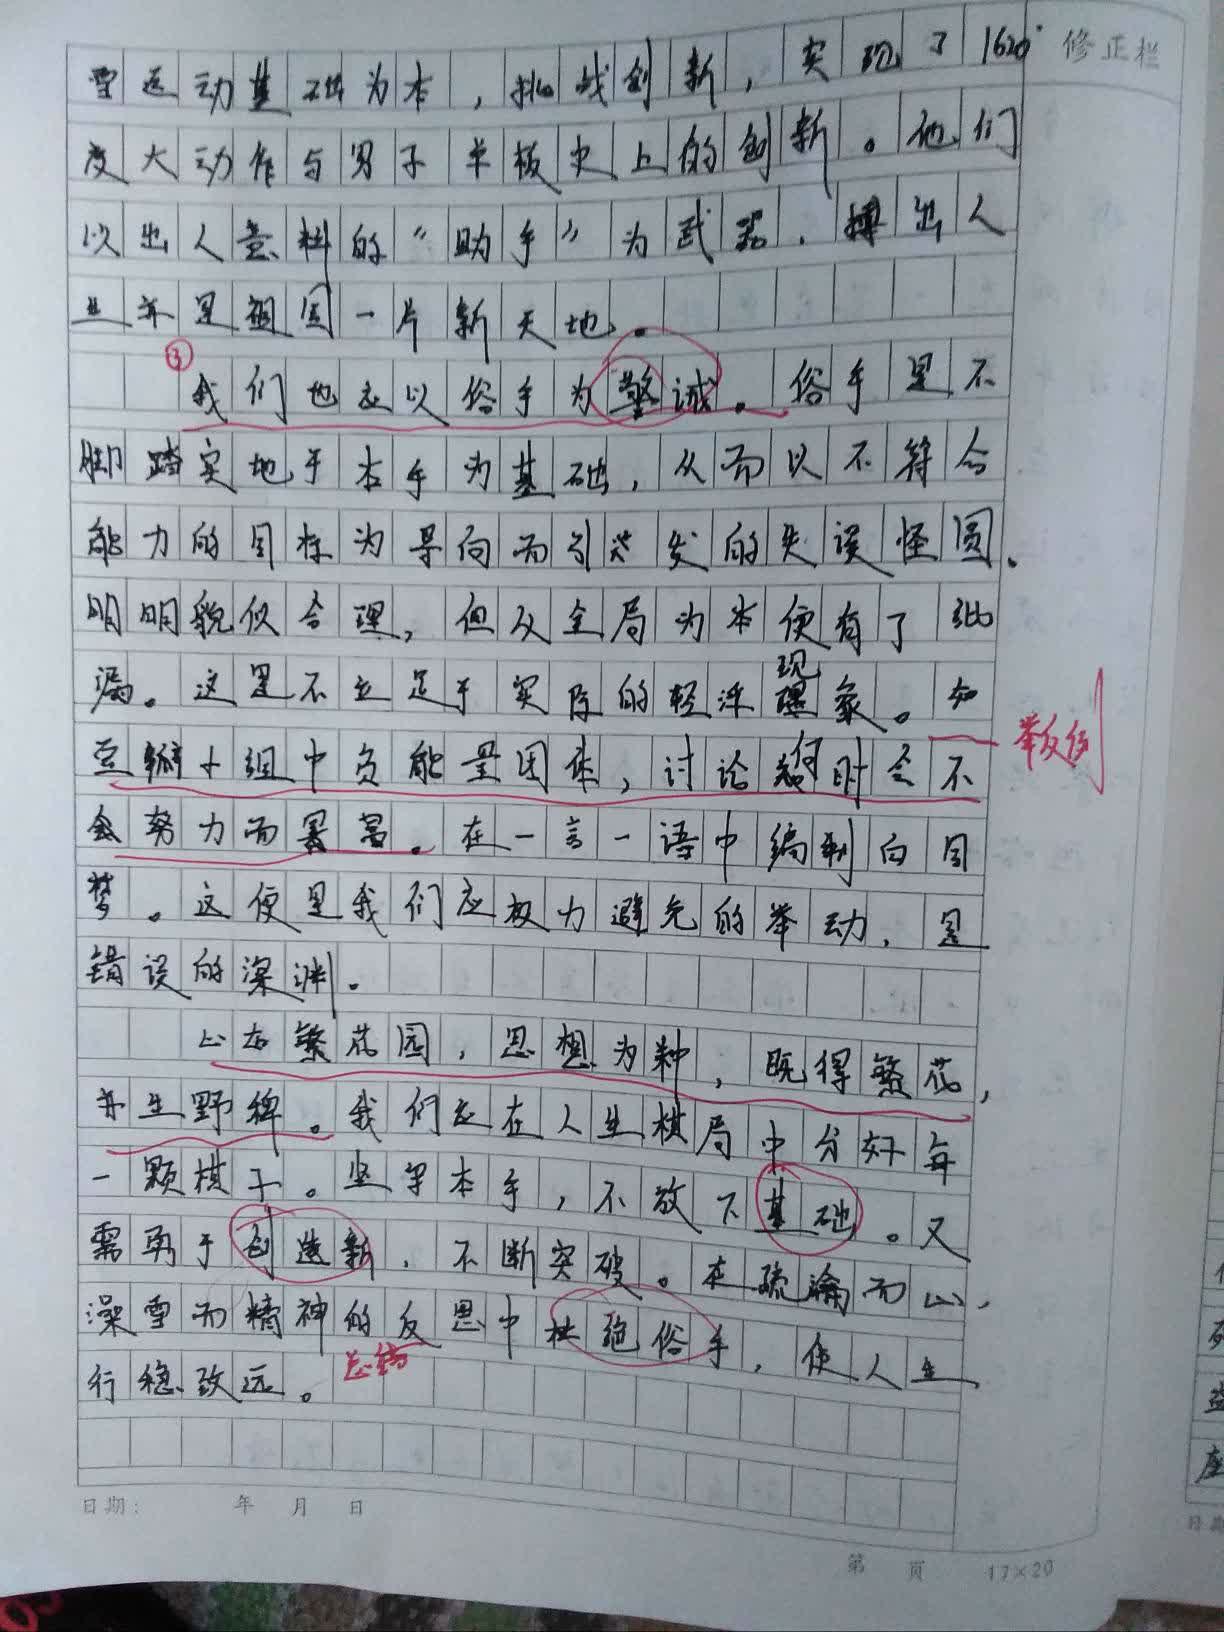 雪运动基础为本，挑战创新，实现了1620°
度大动作与男子单板史上的创新。他们
以出人意料的“助手”为武器，搏出人
生亦是祖国一片新天地。
③
我们也应以俗手为警诫。俗手是不
脚踏实地于本手为基础，从而以不符合
能力的目标为导向而引发的失误怪圆、
明明貌似合理，但从全局为本便有了纰
漏。这是不立足于实际的轻浮现象。如
豆瓣小组中负能量团体，讨论何时会不
会努力而暴富。在一言一语中编制白日
梦。这便是我们应极力避免的举动，是
错误的深渊。
举反例
心有繁花园，思想为种，既得繁花，
亦生野稗。我们应在人生棋局中分好每
一颗棋子。坚守本手，不放下基础。又
需勇于创造新，不断突破。在疏瀹而心，
澡雪而精神的反思中杜绝俗手，使人生
行稳致远。
总结
修正栏
日期： 年 月 日
第 页 17×20